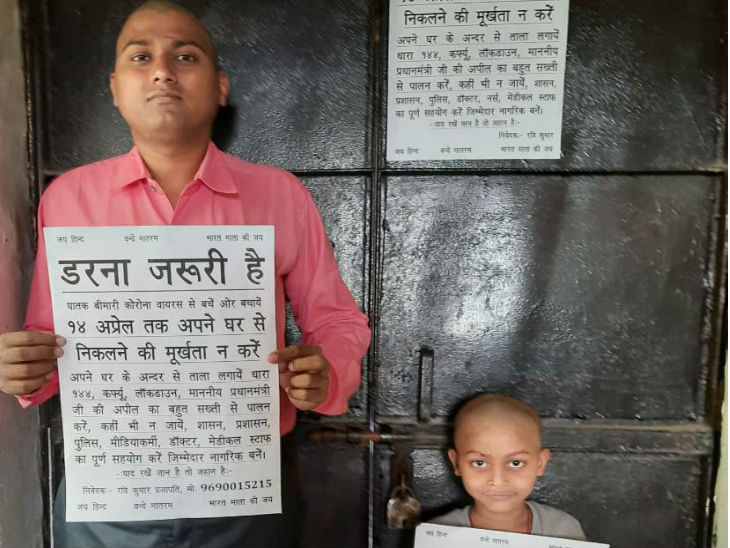 निकलने की मूर्खता न करें
अपने घर के अन्दर से ताला लगायें
धारा १४४, कर्फ्यू, लॉकडाउन, माननीय
प्रधानमंत्री जी की अपील का बहुत सख्ती
से पालन करें, कहीं भी न जायें, शासन,
प्रशासन, पुलिस, डॉक्टर, नर्स, मेडीकल स्टाफ
का पूर्ण सहयोग करें जिम्मेदार नागरिक बनें।
-:याद रखें जान है तो जहान है:-
निवेदकः- रवि कुमार
जय हिन्द वन्दे मातरम भारत माता की जय
जय हिन्द वन्दे मातरम भारत माता की जय
डरना जरूरी है
घातक बीमारी कोरोना वायरस से बचें ओर बचायें
१४ अप्रेल तक अपने घर से
निकलने की मूर्खता न करें
अपने घर के अन्दर से ताला लगायें धारा
१४४, कर्फ्यू, लॉकडाउन, माननीय प्रधानमंत्री
जी की अपील का बहुत सख्ती से पालन
करें, कहीं भी न जायें, शासन, प्रशासन,
पुलिस, मीडियाकर्मी, डॉक्टर, मेडीकल स्टाफ
का पूर्ण सहयोग करें जिम्मेदार नागरिक बनें।
-:याद रखें जान है तो जहान है:-
निवेदकः- रवि कुमार प्रजापति, मो. 9690015215
जय हिन्द वन्दे मातरम भारत माता की जय
जय हिन्द वन्दे मातरम